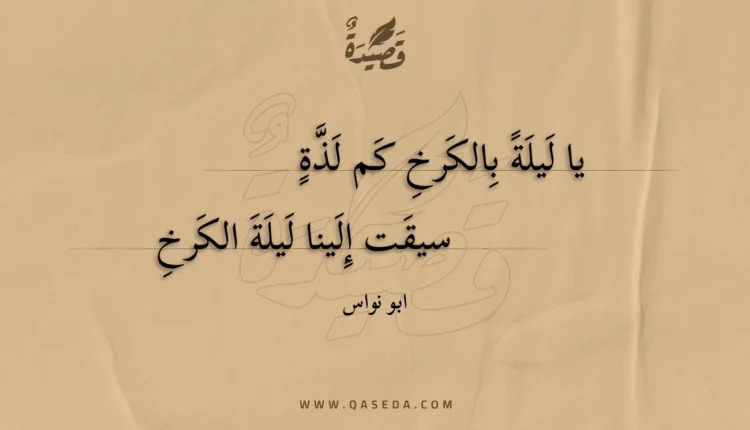 قَصِيدَةٌ
يا لَيلَةً بِالكَرخِ كَم لَذَّةٍ
سيقَت إِلَينا لَيلَةَ الكَرخِ
ابو نواس
WWW.QASEDA.COM